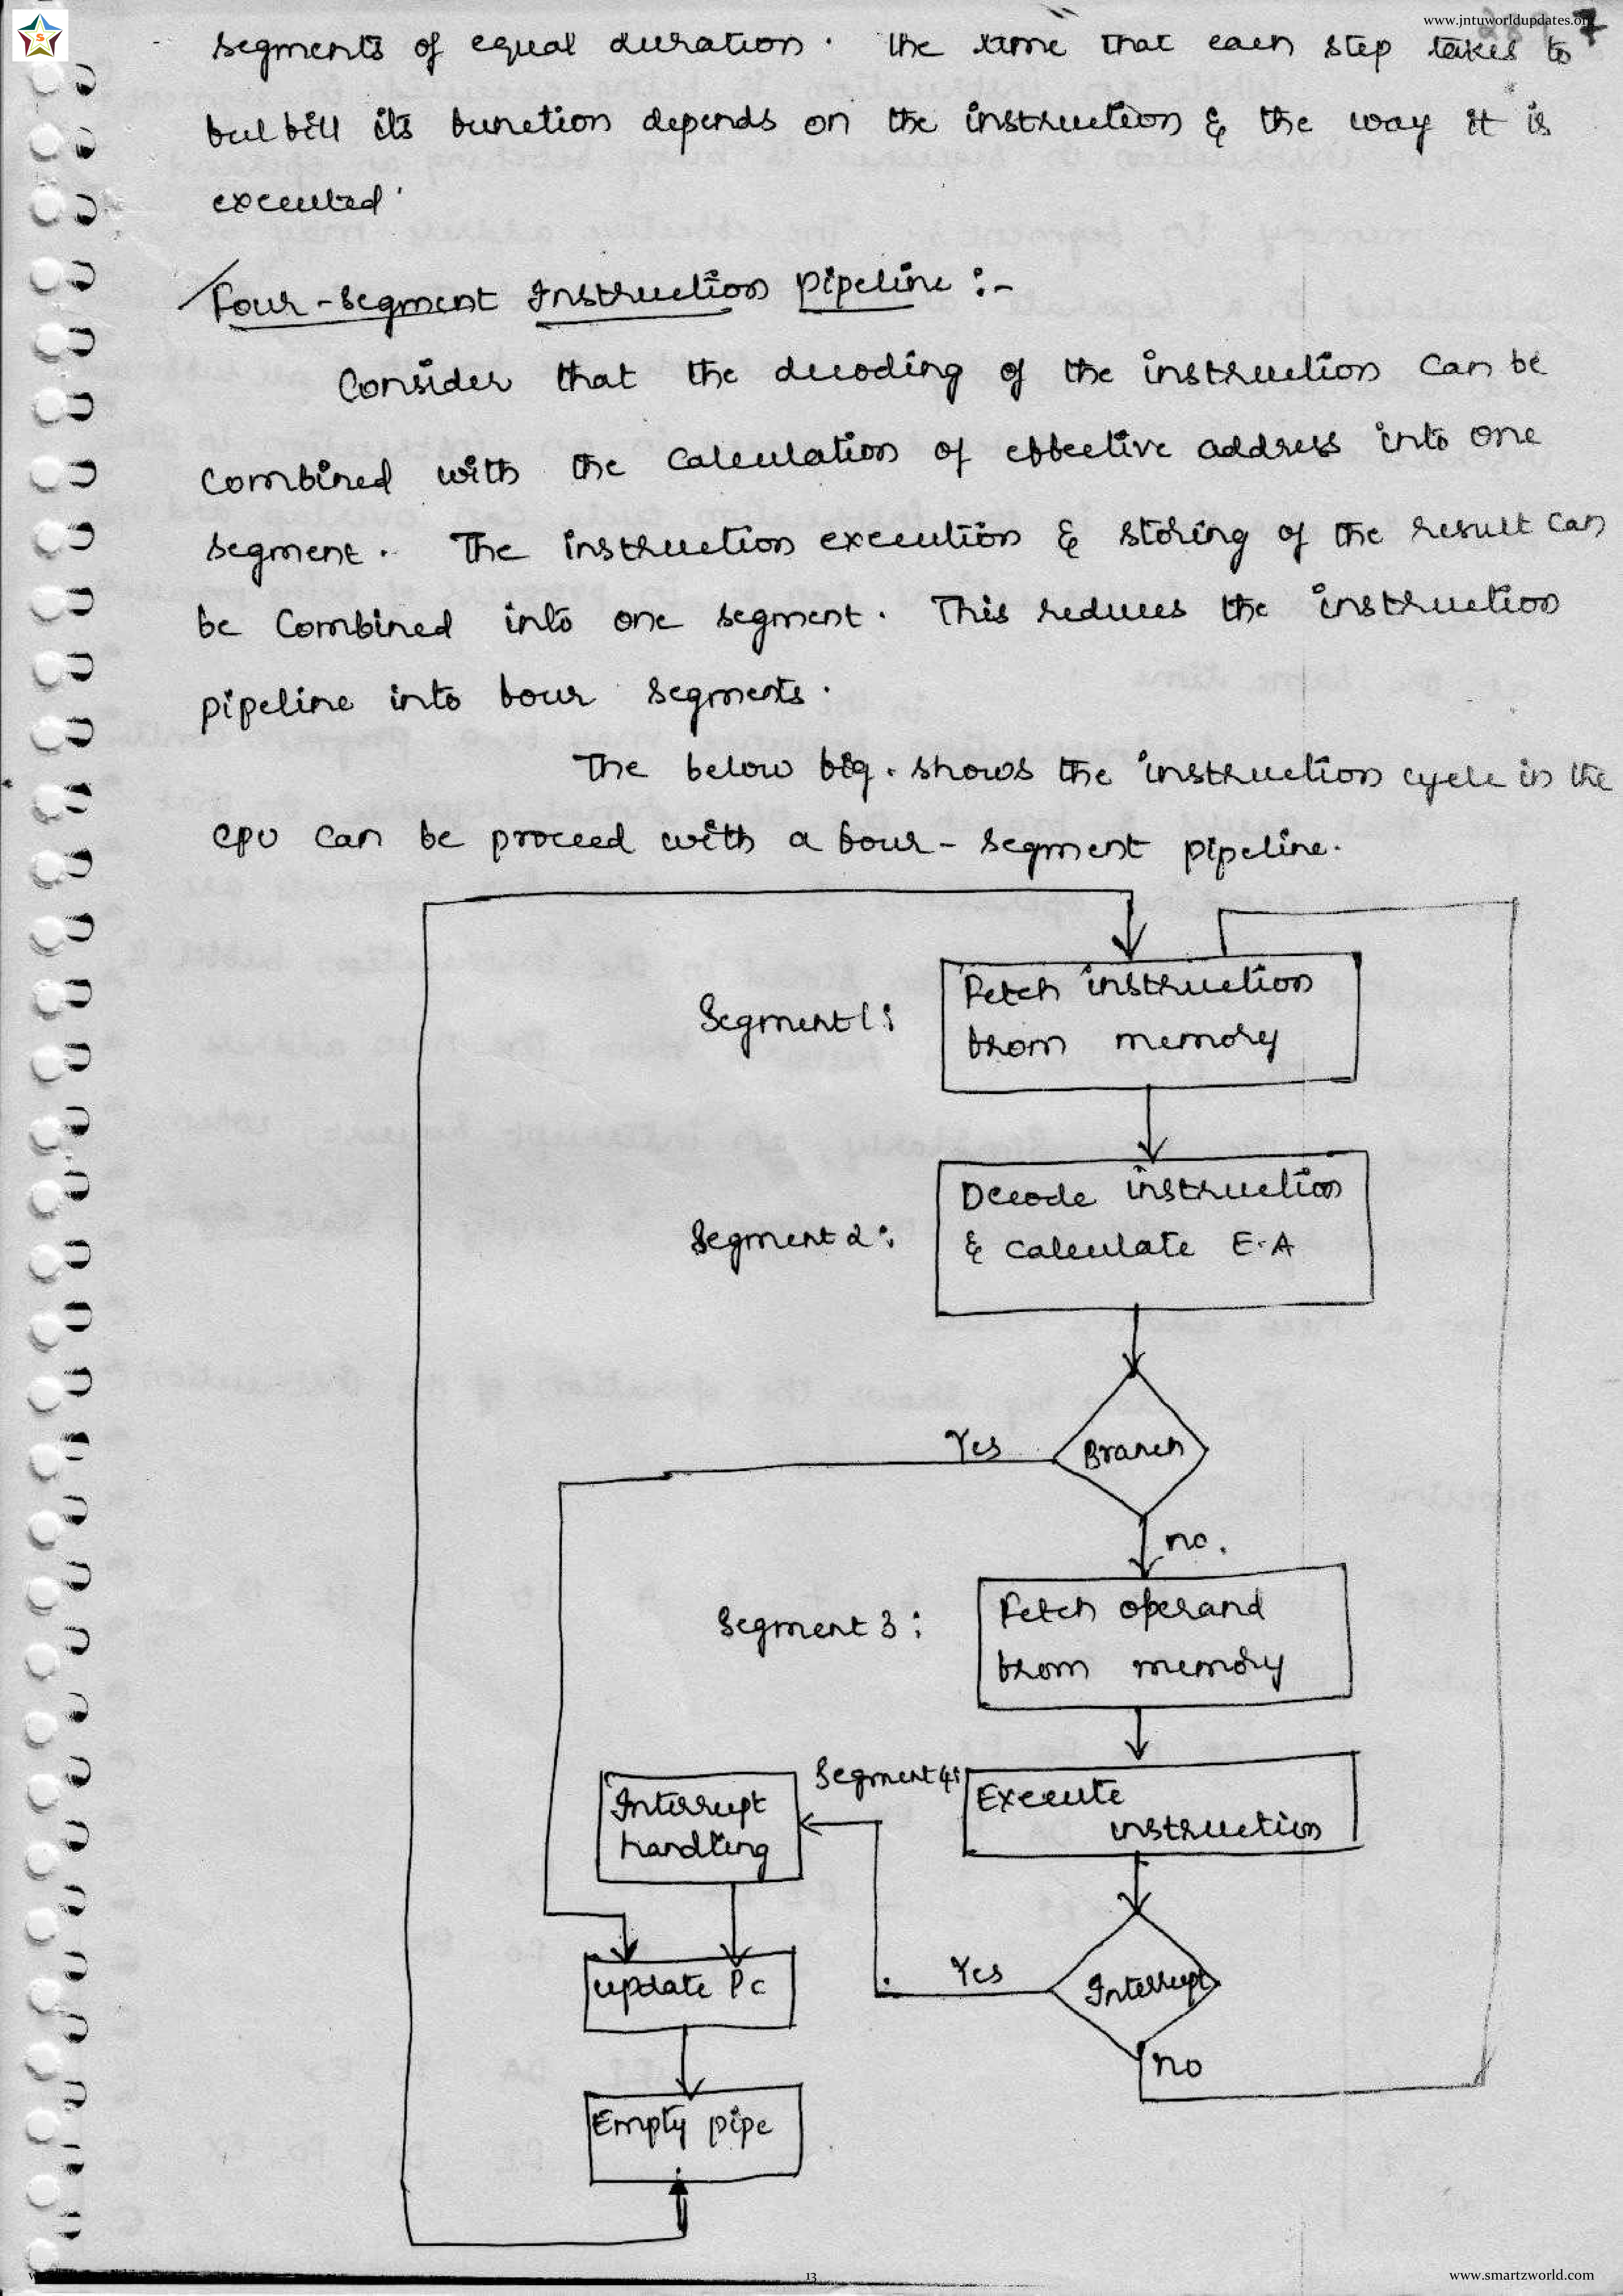 www.jntuworldupdates.org
7
S
segments of equal duration. The time that each step takes to
fulfill its function depends on the instruction & the way it is
executed.
Four-segment Instruction pipeline :-
Consider that the decoding of the instruction can be
combined with the calculation of effective address into one
segment. The instruction execution & storing of the result can
be combined into one segment. This reduces the instruction
pipeline into four segments.
The below fig. shows the instruction cycle in the
CPU can be proceed with a four-segment pipeline.
Segment 1:
Fetch instruction
from memory
Segment 2:
Decode instruction
& calculate E.A
Branch
Yes
no.
Segment 3:
Fetch operand
from memory
Segment 4:
Execute
instruction
Interrupt
handling
Interrupt
Yes
no
update Pc
Empty pipe
13
www.smartzworld.com